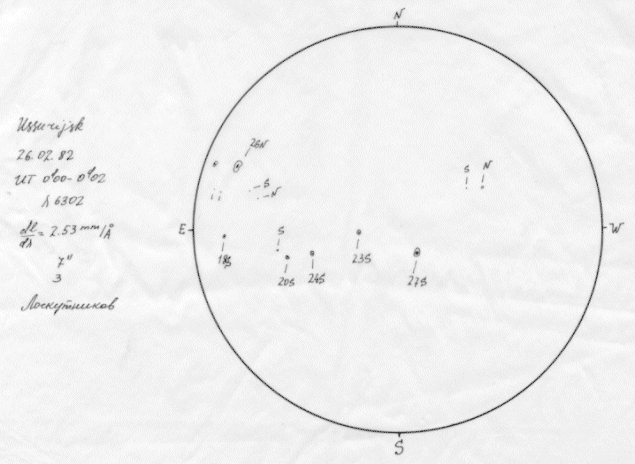 N
Ussurijsk
26.02.82
UT 0ʰ00 - 0ʰ02
λ 6302
dl/dλ = 2.53 mm/Å
7"
3
Лоскутников
26N
S
N
S
N
E
W
S
18S
20S
24S
23S
27S
S